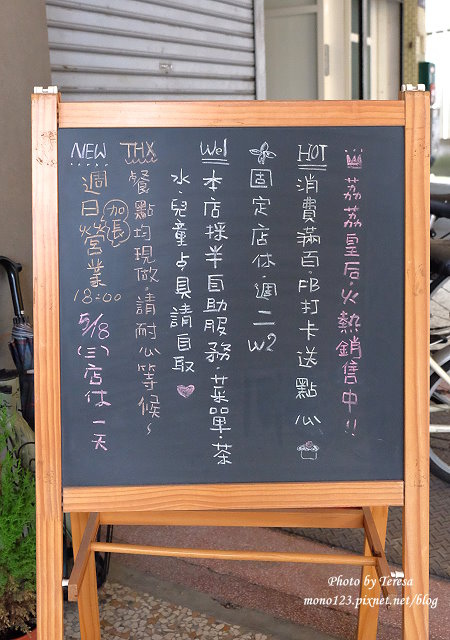 荔荔皇后.火熱銷售中!!
HOT
消費滿百.FB打卡送點心
固定店休.週二
W2
Wel
本店採半自助服務.菜單.茶
水.兒童占具請自取
THX
餐點均現做.請耐心等候~
NEW
週日營業
加長
18:00
5/8(三)店休一天
Photo by Teresa
mono123.pixnet.net/blog